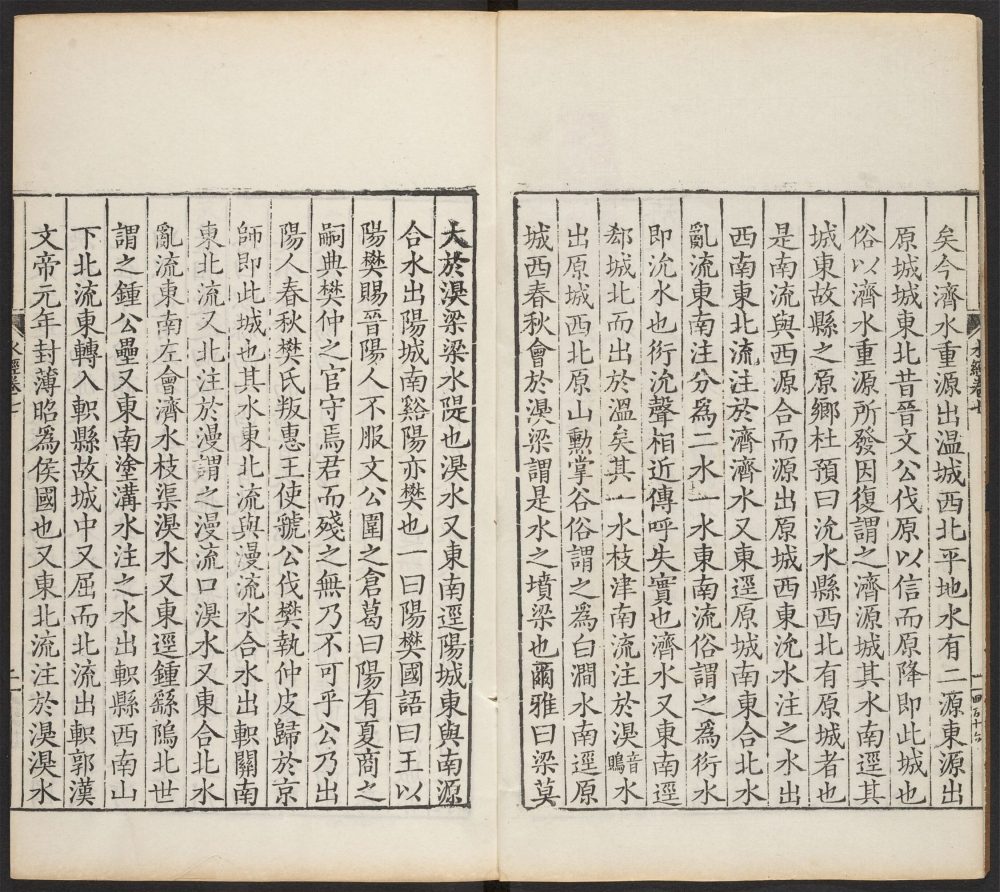 矣今濟水重源出温城西北平地水有二源東源出
原城東北昔晉文公伐原以信而原降即此城也
俗以濟水重源所發因復謂之濟源城其水南逕其
城東故縣之原鄉杜預曰沇水縣西北有原城者也
是南流與西源合而源出原城西東沇水注之水出
西南東北流注於濟濟水又東逕原城南東合北水
亂流東南注分爲二水一水東南流俗謂之爲衍水
即沇水也衍沇聲相近傳呼失實也濟水又東南逕
郄城北而出於溫矣其一水枝津南流注於湨音鶪水
出原城西北原山勲掌谷俗謂之爲白澗水南逕原
城西春秋會於湨梁謂是水之墳梁也爾雅曰梁莫
水經卷七
一
大於湨梁梁水隄也湨水又東南逕陽城東與南源
合水出陽城南谿陽亦樊也一曰陽樊國語曰王以
陽樊賜晉陽人不服文公圍之倉葛曰陽有夏商之
嗣典樊仲之官守焉君而殘之無乃不可乎公乃出
陽人春秋樊氏叛惠王使虢公伐樊執仲皮歸於京
師即此城也其水東北流與漫流水合水出軹關南
東北流又北注於漫謂之漫流口湨水又東合北水
亂流東南左會濟水枝渠湨水又東逕鍾繇塢北世
謂之鍾公壘又東南塗溝水注之水出軹縣西南山
下北流東轉入軹縣故城中又屈而北流出軹郭漢
文帝元年封薄昭爲侯國也又東北流注於湨湨水
水經卷七
二